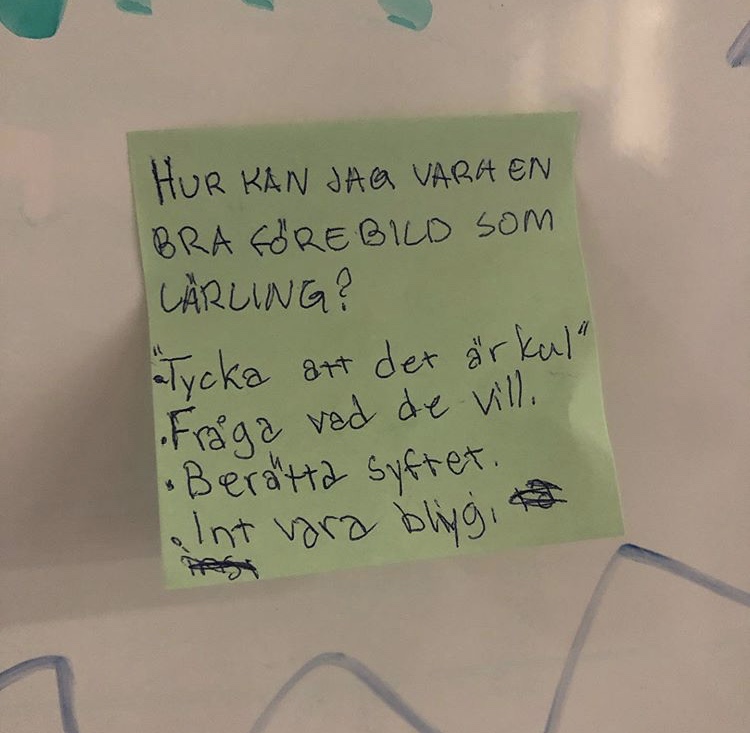 HUR KAN JAG VARA EN
BRA FÖREBILD SOM
LÄRLING?
"•Tycka att det är kul"
•Fråga vad de vill.
•Berätta syftet.
•Int vara blyg.